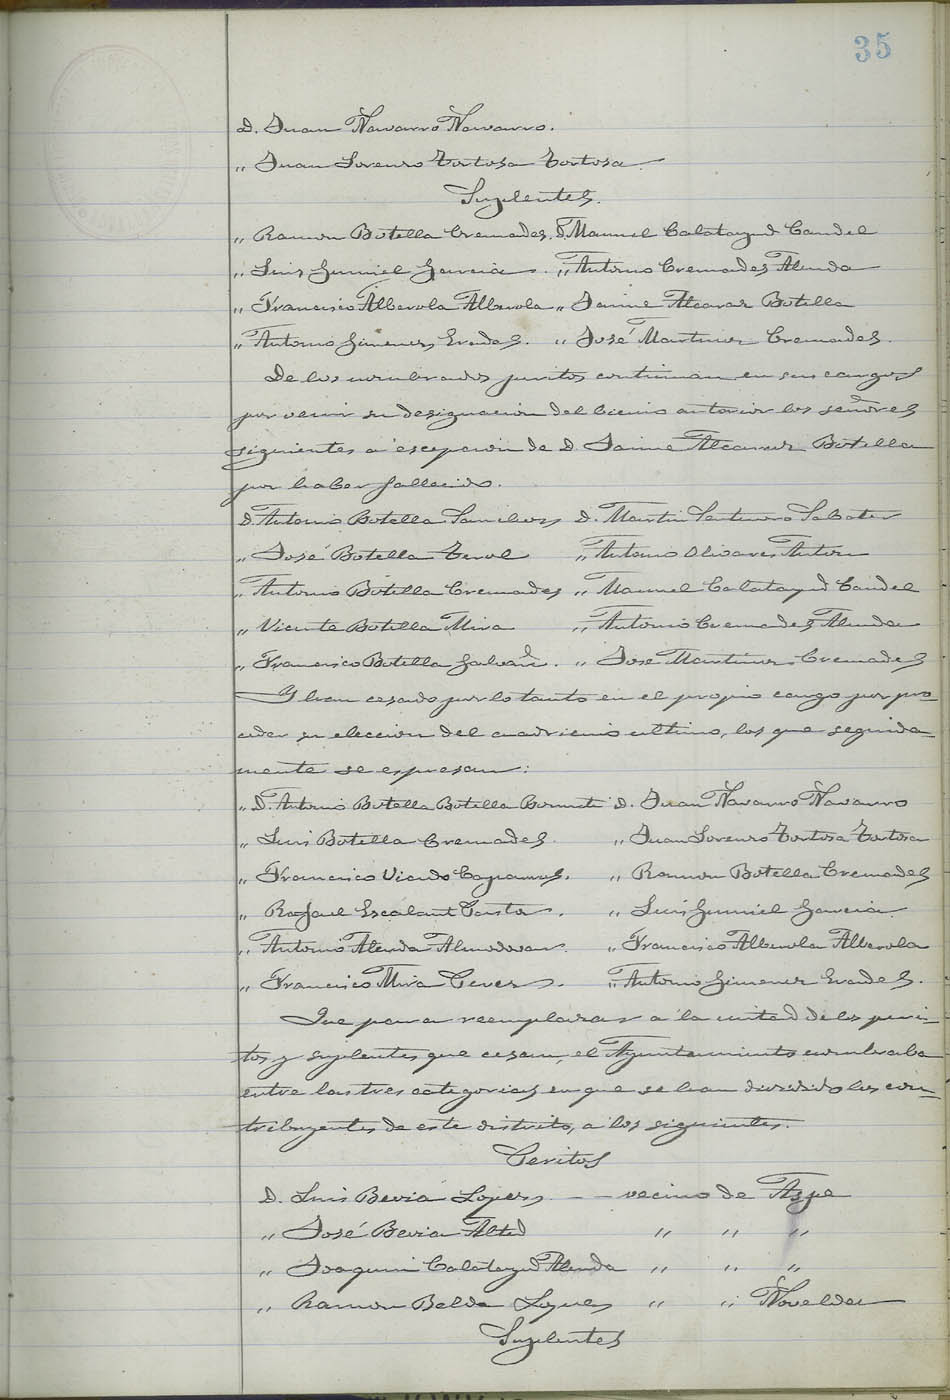 35
D. Juan Navarro Navarro.
„ Juan Lorenzo Tortosa Tortosa.
Suplentes.
„ Ramon Botella Cremades. D. Manuel Calatayud Candel
„ Luis Gumiel Garcia. „ Antonio Cremades Alenda
„ Francisco Alberola Alberola „ Jaime Alcaraz Botella
„ Antonio Gimenez Erades. „ José Martinez Cremades.
De los nombrados peritos continuan en sus cargos
por venir su designacion del bienio anterior los señores
siguientes a escepcion de D. Jaime Alcaraz Botella
por haber fallecido.
D. Antonio Botella Sanchez D. Martin Sabater
„ José Botella Terol „ Antonio Olivares Anton
„ Antonio Botella Cremades „ Manuel Calatayud Candel
„ Vicente Botella Mira „ Antonio Cremades Alenda
„ Francisco Botella Galvañ. „ José Martinez Cremades
Y han cesado por lo tanto en el propio cargo por pro-
ceder su eleccion del cuadrienio ultimo, los que seguida-
mente se espresan:
„ D. Antonio Botella Botella D. Juan Navarro Navarro
„ Luis Botella Cremades „ Juan Lorenzo Tortosa Tortosa
„ Francisco „ Ramon Botella Cremades
„ Rafael Escalant Pastor. „ Luis Gumiel Garcia
„ Antonio Alenda Almodovar. „ Francisco Alberola Alberola
„ Francisco Mira Perez. „ Antonio Gimenez Erades.
Que para reemplazar a la mitad de los peri-
tos y suplentes que cesan, el Ayuntamiento nombraba
entre las tres categorias en que se han dividido los con-
tribuyentes de este distrito, a los siguientes.
Peritos
D. Luis Beviá Lopez — — vecino de Aspe
„ José Bevia Alted „ „ „
„ Joaquin Calatayud Alenda „ „ „
„ Ramon Belda Lopez „ „ Novelda
Suplentes